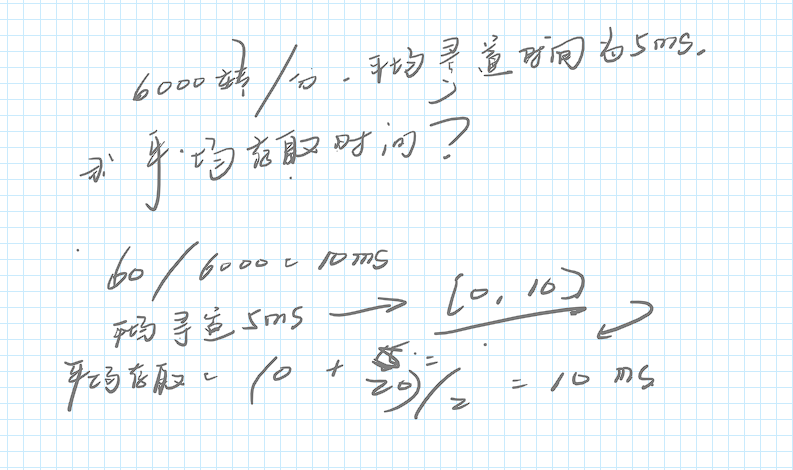 6000转/分.平均寻道时间为5ms.
求平均存取时间?
60/6000=10ms
平均寻道5ms → [0,10]
平均存取=(0+20)/2=10ms